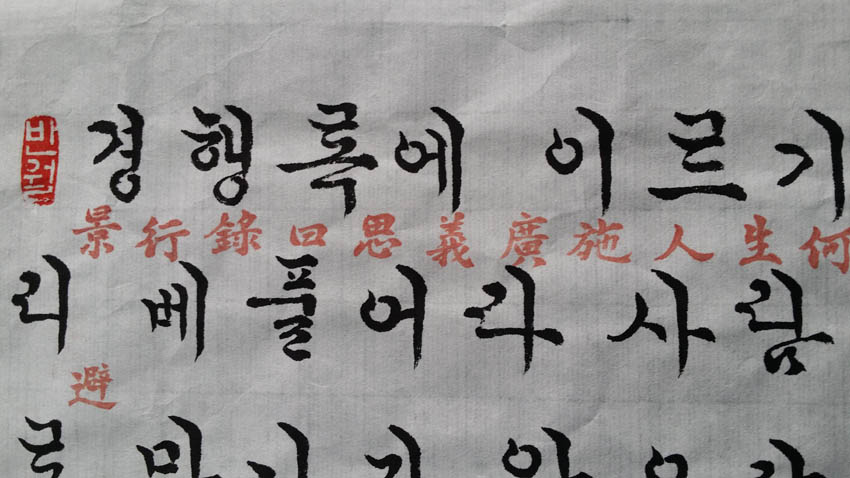 경행록에 이르기
景行錄曰恩義廣施人生何
리 베풀어라 사람
避